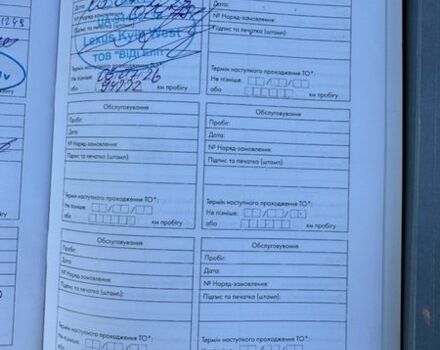 1248
Lexus Kyiv West
ТОВ "ВІДІ Елп
Термін наступного проходження ТО*:
Не пізніше: 05.07.26
або 94772 км пробігу
№ Наряд-замовлення:
Підпис та печатка (штамп):
Термін наступного проходження ТО*:
Не пізніше:
або км пробігу
Обслуговування
Пробіг:
Дата:
№ Наряд-замовлення:
Підпис та печатка (штамп):
Термін наступного проходження ТО*:
Не пізніше:
або км пробігу
Обслуговування
Пробіг:
Дата:
№ Наряд-замовлення:
Підпис та печатка (штамп):
Термін наступного проходження ТО*:
Не пізніше:
або км пробігу
Обслуговування
Пробіг:
Дата:
№ Наряд-замовлення:
Підпис та печатка (штамп):
Термін наступного проходження ТО*:
Не пізніше:
або км пробігу
Обслуговування
Пробіг:
Дата:
№ Наряд-замовлення:
Підпис та печатка (штамп):
Термін наступного проходження ТО*:
Не пізніше:
або